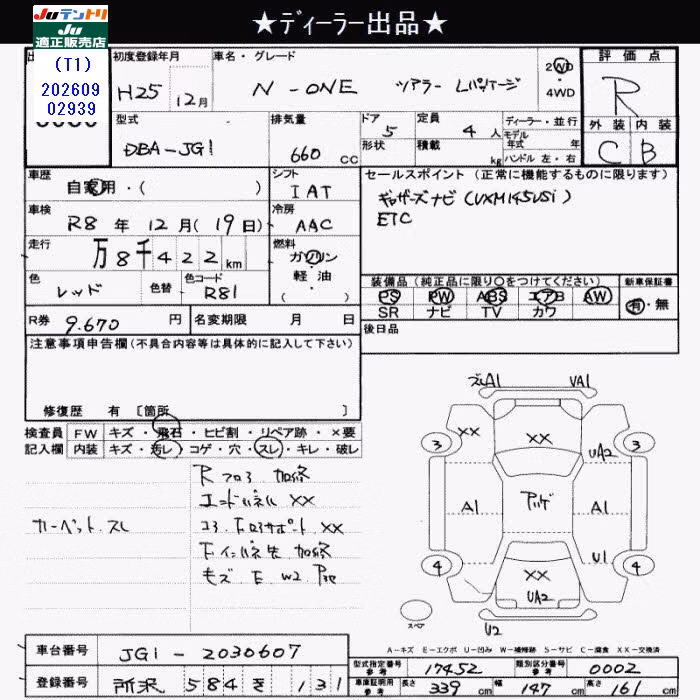 ★ディーラー出品★
Juテントリ
Ju
適正販売店
(T1)
202609
02939
初度登録年月
H25 12月
車名・グレード
N-ONE ツアラー Lパッケージ
2WD
・
4WD
評価点
R
外装 内装
C B
型式
DBA-JG1
排気量
660 cc
ドア
5
形状
定員
4 人
積載
kg
ディーラー・並行
モデル
年式 年
ハンドル 左・右
車歴
自家用・( )
シフト
IAT
セールスポイント(正常に機能するものに限ります)
ギャザーズナビ(VXM145VSi)
ETC
車検
R8 年 12 月(19 日)
冷房
AAC
走行
万 8千 422 km
燃料
ガソリン
軽・油
( )
色
レッド
色替
色コード
R81
装備品(純正品に限り○をつけてください)
PS PW ABS エアB AW
SR ナビ TV カワ
新車保証書
有・無
R券 9.670 円
名変期限 月 日
後日品
注意事項申告欄(不具合内容等は具体的に記入して下さい)
修復歴 有〔箇所 〕
検査員
記入欄
FW キズ・飛石・ヒビ割・リペア跡・×要
内装 キズ・汚レ・コゲ・穴・スレ・キレ・破レ
カーペットスレ
Rフロア 加修
エンドパネル XX
コアドロアサポート XX
Fインパネ先 加修
モズ E W2 P30
ズレA1 VA1
3 XX XX 3
UA2
A1 A1
U1
4 XX 4
UA2
スペア
U2
A-キズ E-エクボ U-凹み W-補修跡 S-サビ C-腐食 XX-交換済
車台番号 JG1-2030607
登録番号 所沢 584 き 131
型式指定番号
参考
17452
類別区分番号
参考
0002
車庫証明用
参考
長さ 339 cm 幅 147 cm 高さ 161 cm